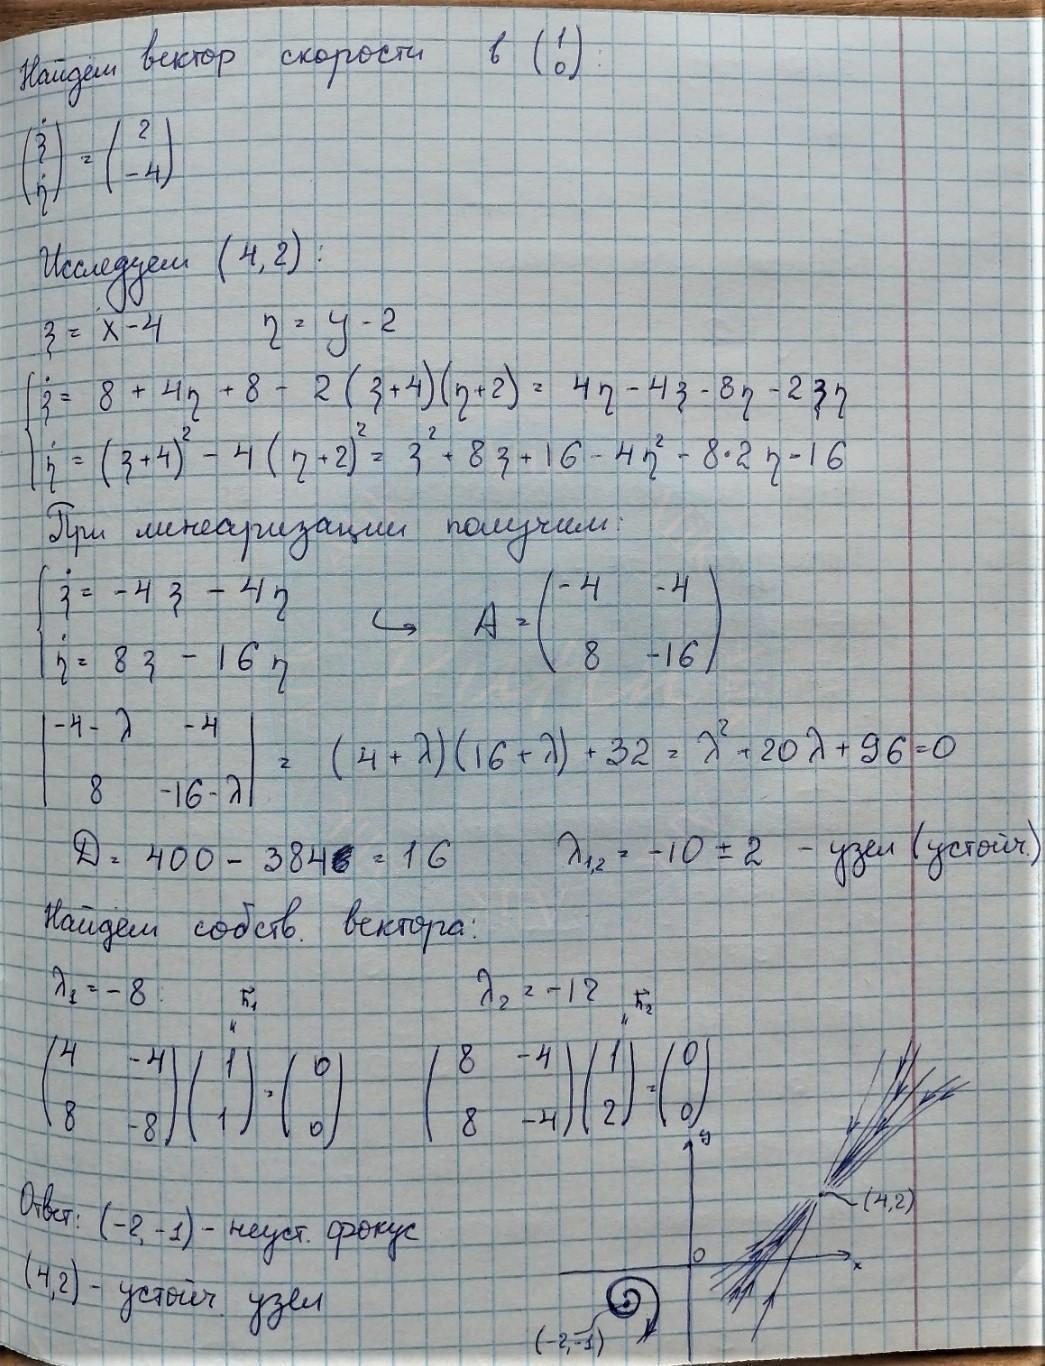 Найдем вектор скорости в (1 0):
(ξ̇ η̇) = (2 -4)
Исследуем (4,2):
ξ = x-4 η = y-2
{ ξ̇ = 8 + 4η + 8 - 2(ξ+4)(η+2) = 4η - 4ξ - 8η - 2ξη
η̇ = (ξ+4)² - 4(η+2)² = ξ² + 8ξ + 16 - 4η² - 8·2η - 16
При линеаризации получим:
{ ξ̇ = -4ξ - 4η
η̇ = 8ξ - 16η ↪ A = (-4 -4 8 -16)
|-4-λ -4 8 -16-λ| = (4+λ)(16+λ) + 32 = λ² + 20λ + 96 = 0
D = 400 - 384 = 16 λ₁,₂ = -10 ± 2 - узел (устойч.)
Найдем собств. вектора:
λ₁ = -8: h⃗₁ λ₂ = -12 h⃗₂
(4 -4 8 -8)(1 1) = (0 0) (8 -4 8 -4)(1 2) = (0 0)
Ответ: (-2,-1) - неуст. фокус
(4,2) - устойч. узел
y
(4,2)
0
x
(-2,-1)